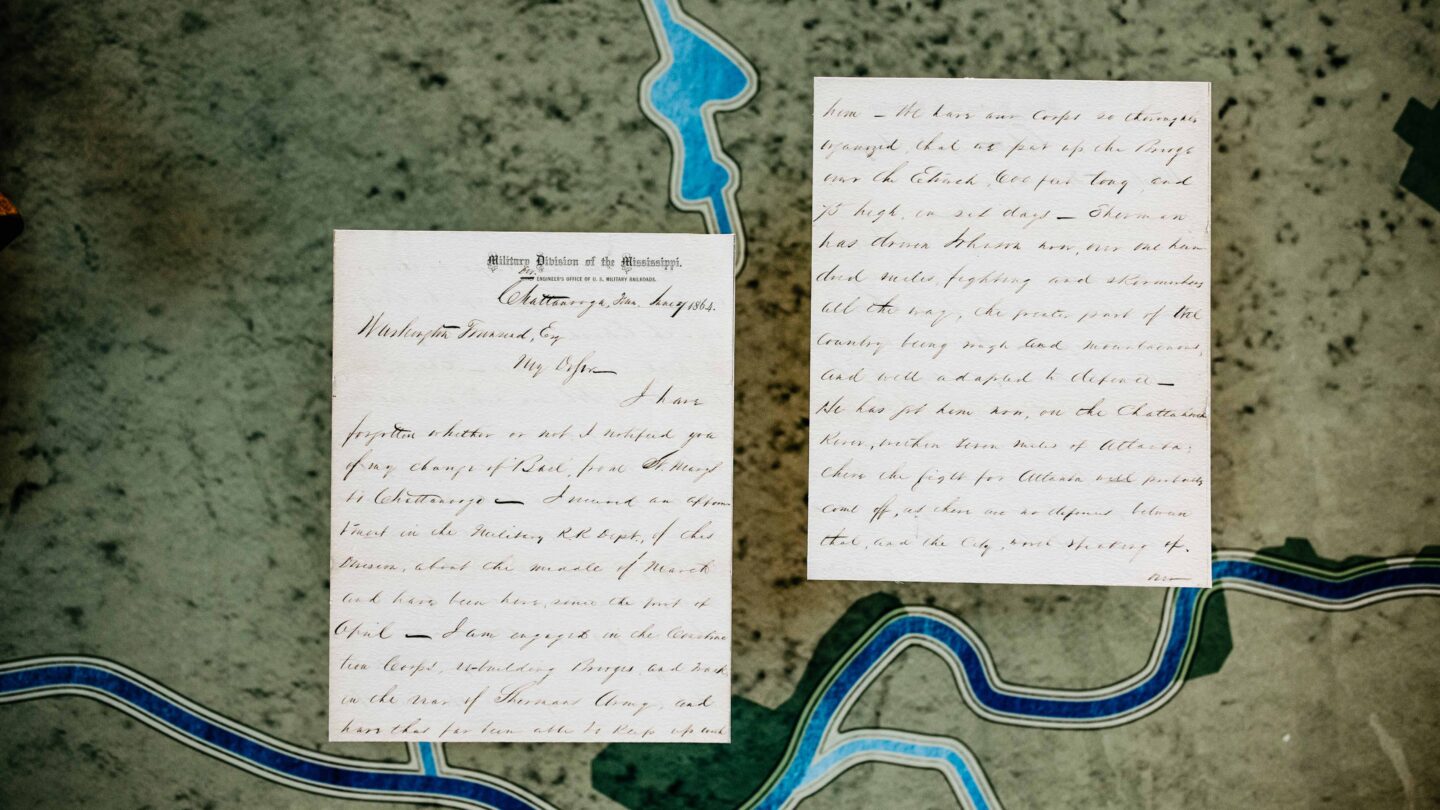 Military Division of the Mississippi.
ENGINEER'S OFFICE OF U. S. MILITARY RAILROADS.
Chattanooga, Tenn. June 1864.
Washington Townsend, Esq
My D Sir
I have
forgotten whether or not, I notified you
of my change of "Base", from St. Marys
to Chattanooga — I received an appoint
ment in the Military R.R. Dept, of this
Division, about the middle of March
and have been here, since the first of
April — I am engaged in the Construc
tion Corps, rebuilding Bridges, and track
in the rear of Shermans Army, and
have thus far been able to keep up with
him — We have our Corps so thoroughly
organized, that we put up the Bridge
over the Etowah, 600 feet long, and
75 high, in six days — Sherman
has driven Johnson now, over one hun
dred miles, fighting and skirmishing
all the way, the greater part of the
Country being rough and mountainous,
and well adapted to defence —
He has got him now, on the Chattahooche
River, within seven miles of Atlanta;
there the fight for Atlanta will probably
come off, as there are no defences between
that, and the City, worth speaking of.